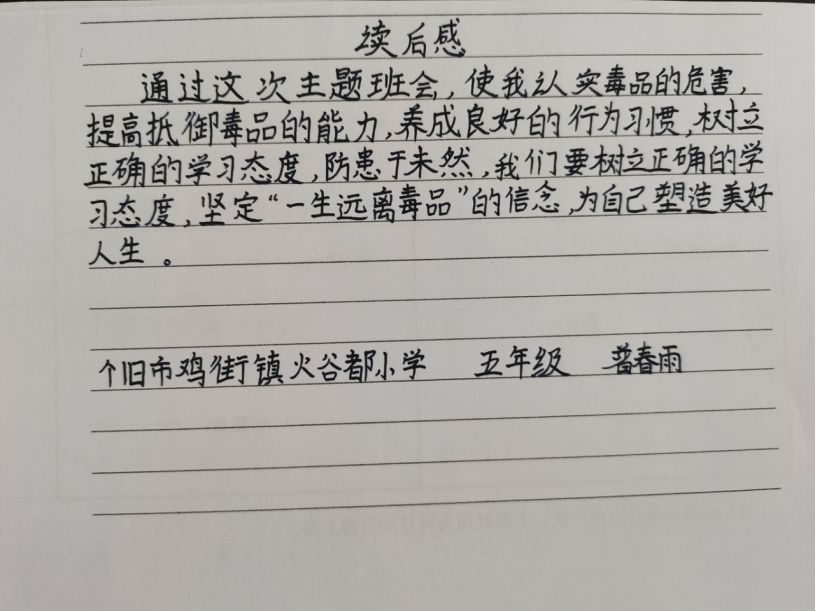 续后感
通过这次主题班会,使我认实毒品的危害,
提高抵御毒品的能力,养成良好的行为习惯,树立
正确的学习态度,防患于未然,我们要树立正确的学
习态度,坚定“一生远离毒品”的信念,为自己塑造美好
人生。
个旧市鸡街镇火谷都小学 五年级 普春雨